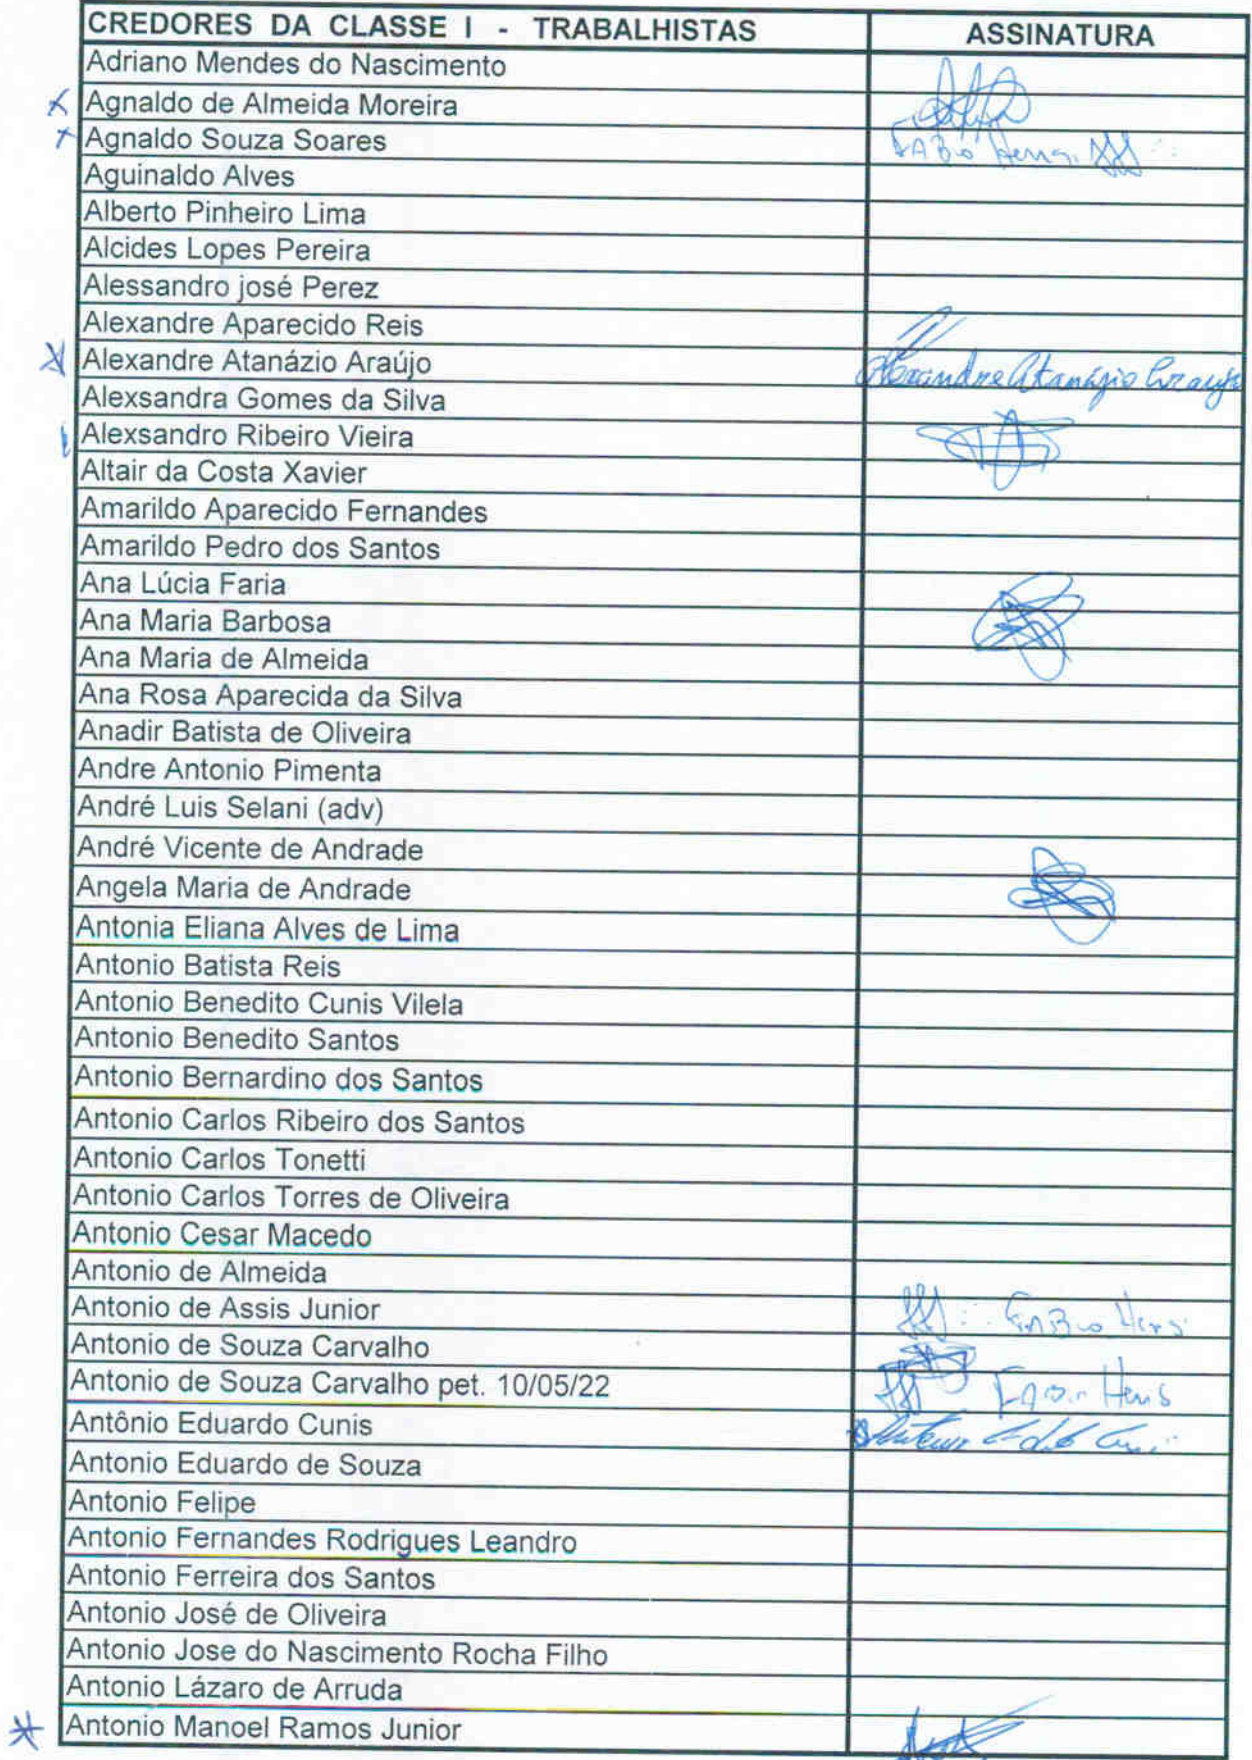 CREDORES DA CLASSE I - TRABALHISTAS ASSINATURA
Adriano Mendes do Nascimento
Agnaldo de Almeida Moreira
Agnaldo Souza Soares
Aguinaldo Alves
Alberto Pinheiro Lima
Alcides Lopes Pereira
Alessandro josé Perez
Alexandre Aparecido Reis
Alexandre Atanázio Araújo Alexandre Atanázio Araujo
Alexsandra Gomes da Silva
Alexsandro Ribeiro Vieira
Altair da Costa Xavier
Amarildo Aparecido Fernandes
Amarildo Pedro dos Santos
Ana Lúcia Faria
Ana Maria Barbosa
Ana Maria de Almeida
Ana Rosa Aparecida da Silva
Anadir Batista de Oliveira
Andre Antonio Pimenta
André Luis Selani (adv)
André Vicente de Andrade
Angela Maria de Andrade
Antonia Eliana Alves de Lima
Antonio Batista Reis
Antonio Benedito Cunis Vilela
Antonio Benedito Santos
Antonio Bernardino dos Santos
Antonio Carlos Ribeiro dos Santos
Antonio Carlos Tonetti
Antonio Carlos Torres de Oliveira
Antonio Cesar Macedo
Antonio de Almeida
Antonio de Assis Junior
Antonio de Souza Carvalho
Antonio de Souza Carvalho pet. 10/05/22
Antônio Eduardo Cunis
Antonio Eduardo de Souza
Antonio Felipe
Antonio Fernandes Rodrigues Leandro
Antonio Ferreira dos Santos
Antonio José de Oliveira
Antonio Jose do Nascimento Rocha Filho
Antonio Lázaro de Arruda
Antonio Manoel Ramos Junior